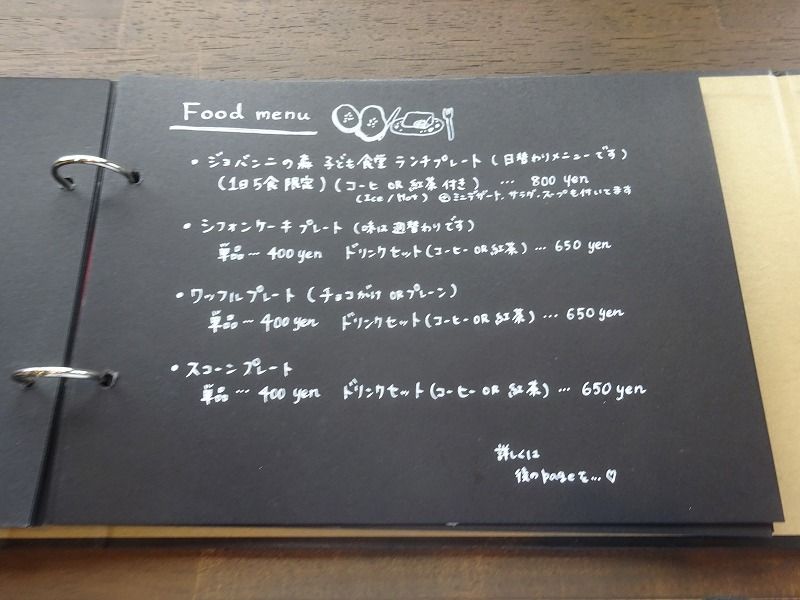 Food menu
・ジョバンニの森 子ども食堂 ランチプレート (日替わりメニューです)
(1日5食限定) (コーヒ OR 紅茶付き) … 800 yen
(Ice / Hot) ⊕ ミニデザート、サラダ、スープも付いてます
・シフォンケーキプレート (味は週替わりです)
単品〜400 yen ドリンクセット(コーヒー OR 紅茶) … 650 yen
・ワッフルプレート (チョコがけ OR プレーン)
単品〜400 yen ドリンクセット(コーヒー OR 紅茶) … 650 yen
・スコーンプレート
単品…400 yen ドリンクセット(コーヒー OR 紅茶) … 650 yen
詳しくは
後のpageを…♡